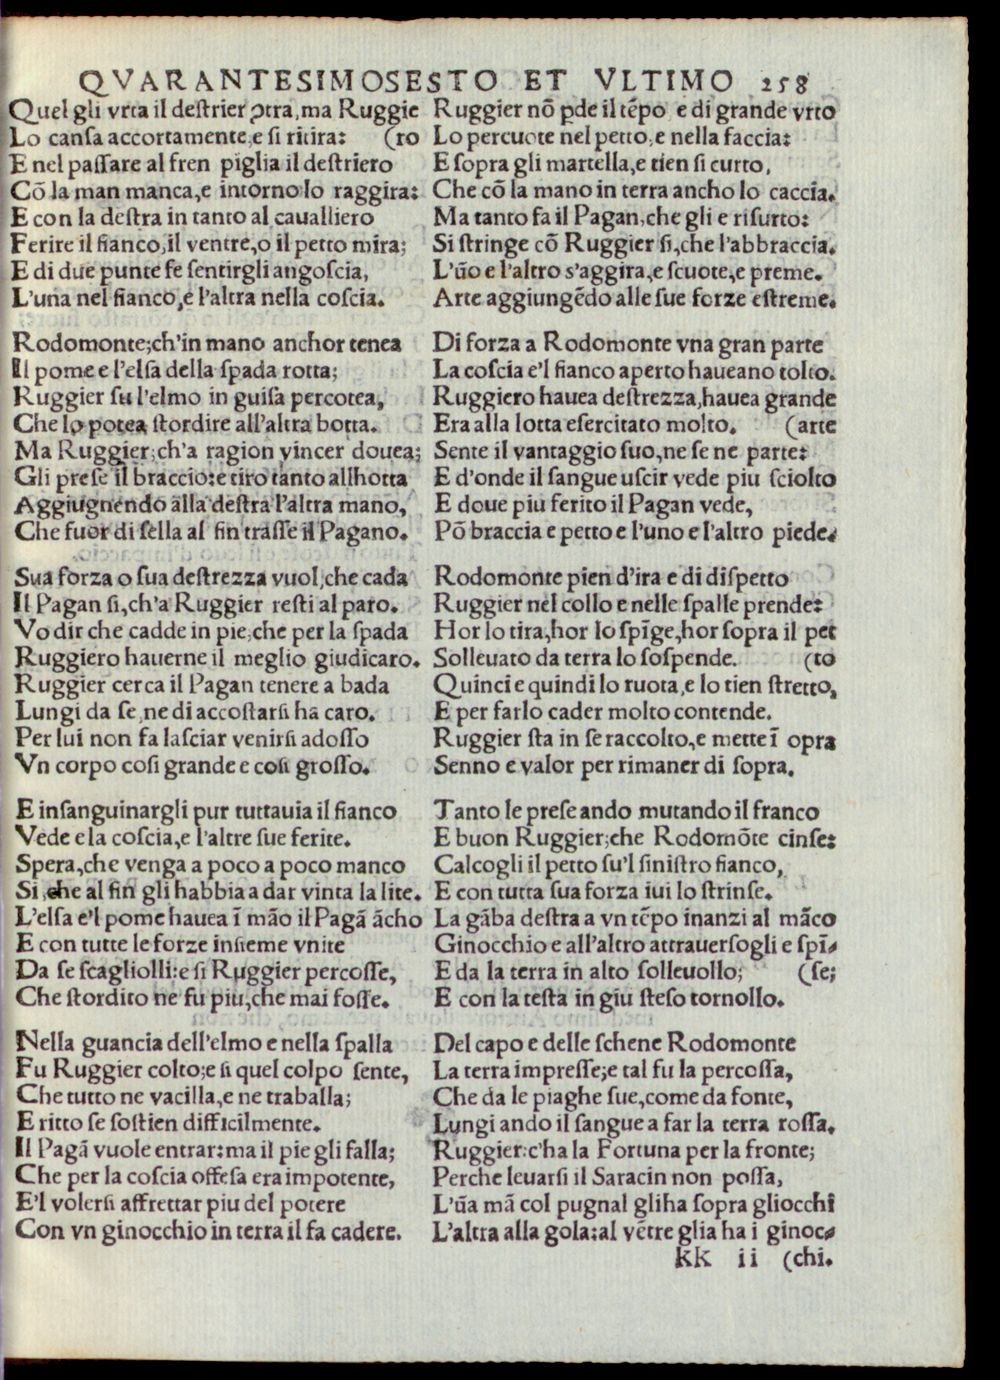 QVARANTESIMOSESTO ET VLTIMO 258
Quel gli vrta il deſtrier ↄtra, ma Ruggie
Lo canſa accortamente, e si ritira: (ro
E nel paſſare al fren piglia il deſtriero
Cõ la man manca, e intorno lo raggira:
E con la deſtra in tanto al caualliero
Ferire il fianco, il ventre, o il petto mira;
E di due punte fe ſentirgli angoſcia,
L'una nel fianco, e l'altra nella coſcia.

Rodomonte; ch'in mano anchor tenea
Il pome e l'elſa della ſpada rotta;
Ruggier ſu l'elmo in guiſa percotea,
Che lo potea ſtordire all'altra botta.
Ma Ruggier; ch'a ragion vincer douea;
Gli preſe il braccio: e tiro tanto allhotta
Aggiugnendo alla deſtra l'altra mano,
Che fuor di ſella al fin traſſe il Pagano.

Sua forza o ſua deſtrezza vuol, che cada
Il Pagan ſi, ch'a Ruggier reſti al paro.
Vo dir che cadde in pie; che per la ſpada
Ruggiero hauerne il meglio giudicaro.
Ruggier cerca il Pagan tenere a bada
Lungi da ſe, ne di accoſtarſi ha caro.
Per lui non fa laſciar venirſi adoſſo
Vn corpo coſi grande e coſi groſſo.

E inſanguinargli pur tuttauia il fianco
Vede e la coſcia, e l'altre ſue ferite.
Spera, che venga a poco a poco manco
Si, che al fin gli habbia a dar vinta la lite.
L'elſa e'l pome hauea ĩ mão il Pagã ãcho
E con tutte le forze inſieme vnite
Da ſe ſcagliolli: e ſi Ruggier percoſſe,
Che ſtordito ne fu piu, che mai foſſe.

Nella guancia dell'elmo e nella ſpalla
Fu Ruggier colto; e ſi quel colpo ſente,
Che tutto ne vacilla, e ne traballa;
E ritto ſe ſoſtien difficilmente.
Il Pagã vuole entrar: ma il pie gli falla;
Che per la coſcia offeſa era impotente,
E'l volerſi affrettar piu del potere
Con vn ginocchio in terra il fa cadere.

Ruggier nõ ꝑde il tẽpo e di grande vrto
Lo percuote nel petto, e nella faccia:
E ſopra gli martella, e tien ſi curto,
Che cõ la mano in terra ancho lo caccia.
Ma tanto fa il Pagan, che gli e riſurto:
Si ſtringe cõ Ruggier ſi, che l'abbraccia.
L'ũo e l'altro s'aggira, e ſcuote, e preme.
Arte aggiungẽdo alle ſue forze eſtreme.

Di forza a Rodomonte vna gran parte
La coſcia e'l fianco aperto haueano tolto.
Ruggiero hauea deſtrezza, hauea grande
Era alla lotta eſercitato molto. (arte
Sente il vantaggio ſuo, ne ſe ne parte:
E d'onde il ſangue uſcir vede piu ſciolto
E doue piu ferito il Pagan vede,
Põ braccia e petto e l'uno e l'altro piede.

Rodomonte pien d'ira e di diſpetto
Ruggier nel collo e nelle ſpalle prende:
Hor lo tira, hor lo ſpĩge, hor ſopra il pet
Solleuato da terra lo ſoſpende. (to
Quinci e quindi lo ruota, e lo tien ſtretto,
E per farlo cader molto contende.
Ruggier ſta in ſe raccolto, e mette ĩ opra
Senno e valor per rimaner di ſopra.

Tanto le preſe ando mutando il franco
E buon Ruggier; che Rodomõte cinſe:
Calcogli il petto ſu'l ſiniſtro fianco,
E con tutta ſua forza iui lo ſtrinſe.
La gãba deſtra a vn tẽpo inanzi al mãco
Ginocchio e all'altro attrauerſogli e ſpĩ-
E da la terra in alto ſolleuollo; (ſe;
E con la teſta in giu ſteſo tornollo.

Del capo e delle ſchene Rodomonte
La terra impreſſe; e tal fu la percoſſa,
Che da le piaghe ſue, come da fonte,
Lungi ando il ſangue a far la terra roſſa.
Ruggier: c'ha la Fortuna per la fronte;
Perche leuarſi il Saracin non poſſa,
L'ũa mã col pugnal gli ha ſopra gliocchi
L'altra alla gola: al vẽtre glia ha i ginoc-
kk ii (chi.